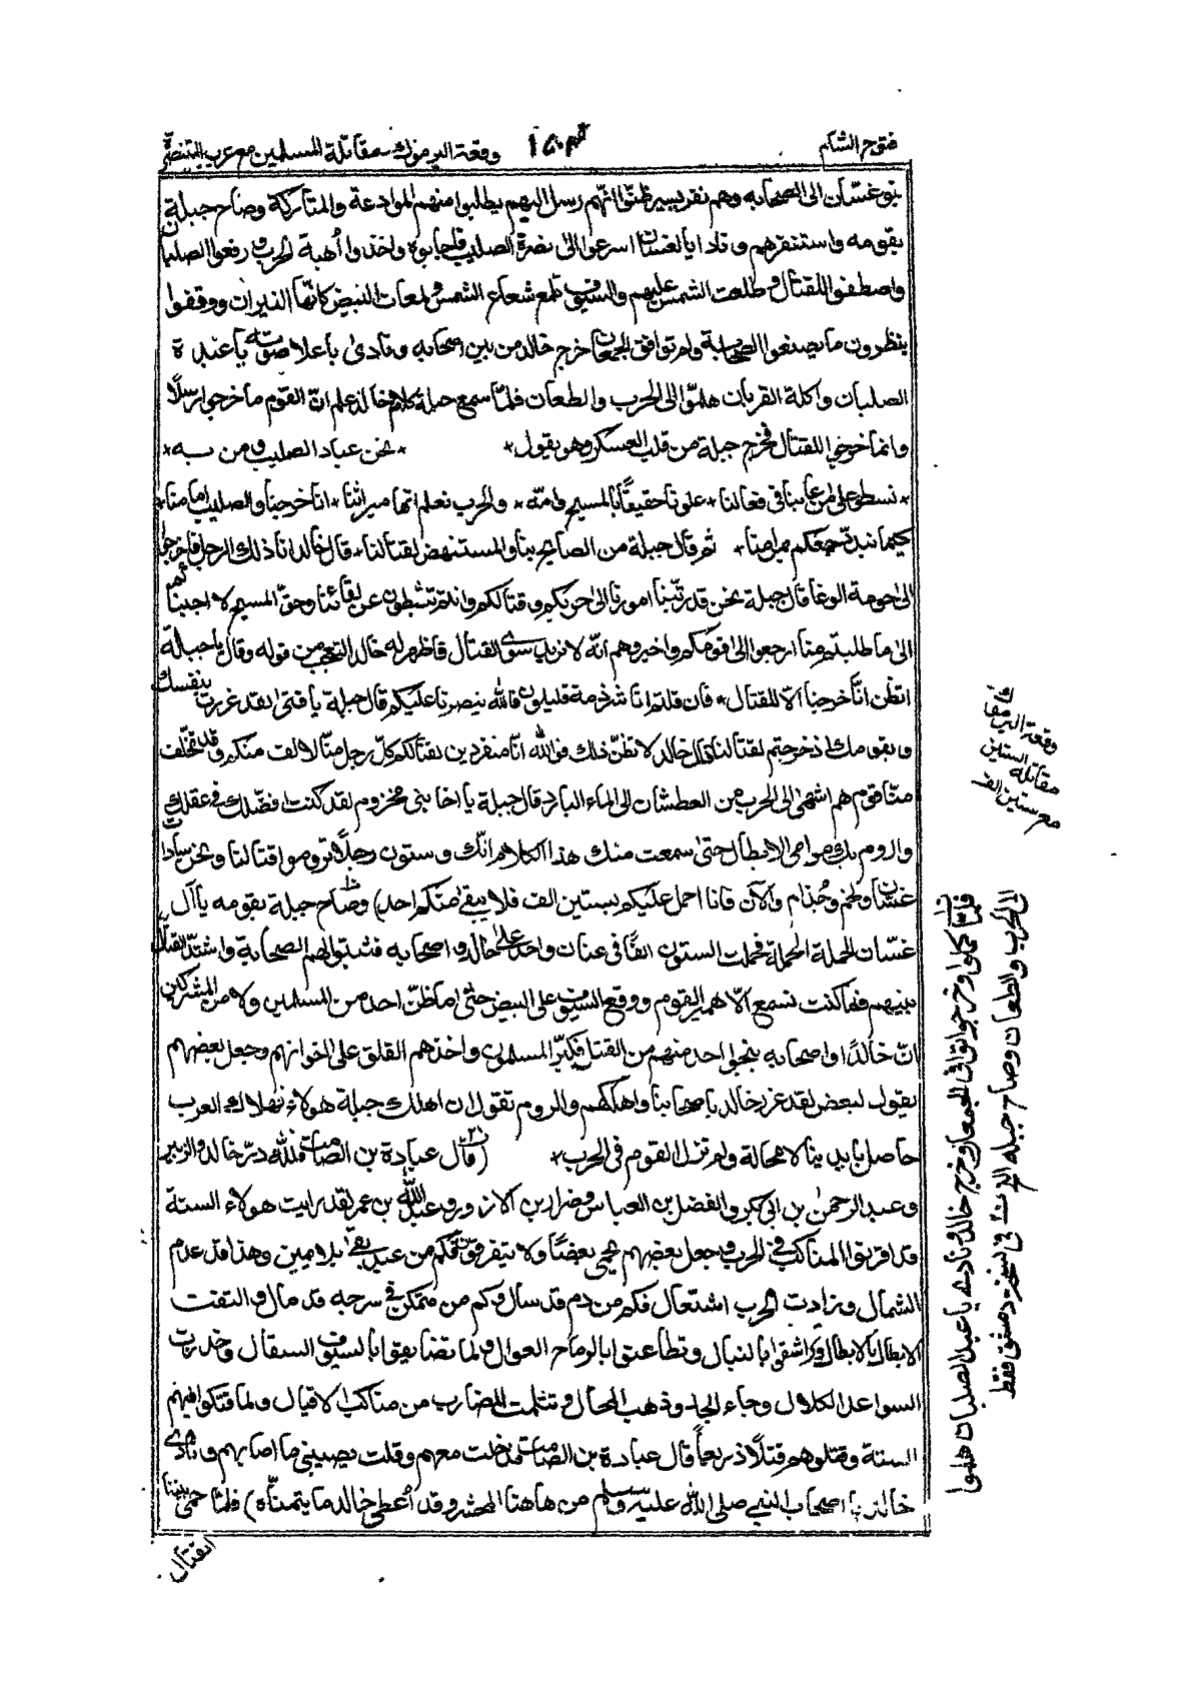 فتوح الشام
وقعة اليرموك مقاتلة المسلمين مع عرب المتنصرة
بنو غسان الى الصحابة وهم نفر يسير فظنوا انهم رسل اليهم يطلبوا منهم الموادعة والمتاركة وصاح جبلة
بقومه واستنفرهم ونادا يا لغسان اسرعوا الى نصرة الصليب فاجابوه واخذوا أهبة الحرب ورفعوا الصلبان
واصطفوا للقتال وطلعت الشمس عليهم والسيوف تلمع شعاع الشمس ولمعات البيض كانها النيران ووقفوا
ينظرون ما يصنعوا الصحابة ولم توافق الجمعان خرج خالد من بين اصحابه ونادى باعلا صوته يا عبدة
الصلبان واكلة القربان هلموا الى الحرب والطعان فلما سمع جبلة كلام خالد علم ان القوم ما خرجوا رسلاً
وانما خرجوا للقتال فخرج جبلة من قلب العسكر وهو يقول * * نحن عباد الصليب ومن به *
* نسطو على من عابنا في فعالنا * علونا حقيقًا بالمسيح وامّه * والحرب نعلم انها ميراثنا * انا خرجنا والصليب امامنا *
كيما نبدّ جمعكم بمرامنا * ثم قال جبلة من الصايح بنا والمستنهض لقتالنا * قال خالد انا ذلك الرجل فاخرجوا
الى حومة الوغا قال جبلة نحن قد رتّبنا امورنا الى حربكم وقتالكم وانتم تثبطون عن لقائنا وحقّ المسيح لا اجبناكم
الى ما طلبتم منا ارجعوا الى قومكم واخبروهم انّه لا نريد سوى القتال فاظهر له خالد التعجب من قوله وقال يا جبلة
اتظن انّا خرجنا الّا للقتال * فان قلتم انا شرذمة قليلون فالله ينصرنا عليكم قال جبلة يا فتى لقد غررت بنفسك
وبقومك اذ خرجتم لقتالنا قال خالد لا تظنّ ذلك فوالله انّا منفردين بقتالكم كلّ رجل منّا لالف منكم وقد تخلّف
منّا قوم هم اشهى الى الحرب من العطشان الى الماء البارد قال جبلة يا اخا بني مخزوم لقد كنت افضّلك في عقلك
واروم بك مرامي الابطال حتى سمعت منك هذا الكلام انّك وستون رجلًا تروموا قتالنا ونحن سادات
غسّان ولخم وجُذام والآن فانا احمل عليكم بستين الف فلا يبقى منكم احد) وصاح جبلة بقومه يا آل
غسّان الحملة الحملة فحملت الستون الفًا في عنان واحد على خالد واصحابه فثبتوا لهم الصحابة واشتدّ القتال
بينهم فما كنت تسمع الّا همير القوم ووقع السيوف على البيض حتى ما ظنّ احد من المسلمين ولا من المشركين
انّ خالدًا واصحابه ينجوا احد منهم من القتل فكبّر المسلمون واخذهم القلق على اخوانهم وجعل بعضهم
يقول لبعض لقد غرر خالد باصحابنا واهلكهم والروم تقول ان اهلك جبلة هولاء فهلاك العرب
حاصل بايدينا لا محالة ولم تزل القوم في الحرب * (قال عبادة بن الصامت فلله درّ خالد والزبير
وعبد الرحمن بن ابي بكر والفضل بن العباس وضرار بن الازور وعبد الله بن عمر لقد رايت هولاء الستة
وقد قرنوا المناكب في الحرب وجعل بعضهم يحمي بعضًا ولا يتفرقون
الشمال وزادت الحرب اشتعال فكم من دم قد سال وكم من متمكن في سرجه قد مال والتفت
الابطال بالابطال وتراشقوا بالنبال وتطاعنوا بالرماح العوال ولما تضايقوا بالسيوف السقال وخدرت
السواعد الكلال وجاء الجد وذهب المحال وتثلمت المضارب من مناكب الاقيال ولما فتكوا فيهم
الستة وقتلوهم قتلًا ذريعًا قال عبادة بن الصامت فدخلت معهم وقلت يصيبني ما اصابهم ونادى
خالد يا اصحاب النبي صلى الله عليه وسلم من هاهنا المحشر وقد أعطى خالد ما يتمنّاه) فلمّا حمي بيننا
القتال
وقعة اليرموك
مقاتلة الستين
مع ستين الف
وخرجوا توافق الجمعان وخرج خالد ونادى يا عبد الصلبان هلموا
الى الحرب والطعان وصاح جبلة الخ في نسخة دمشق فقط